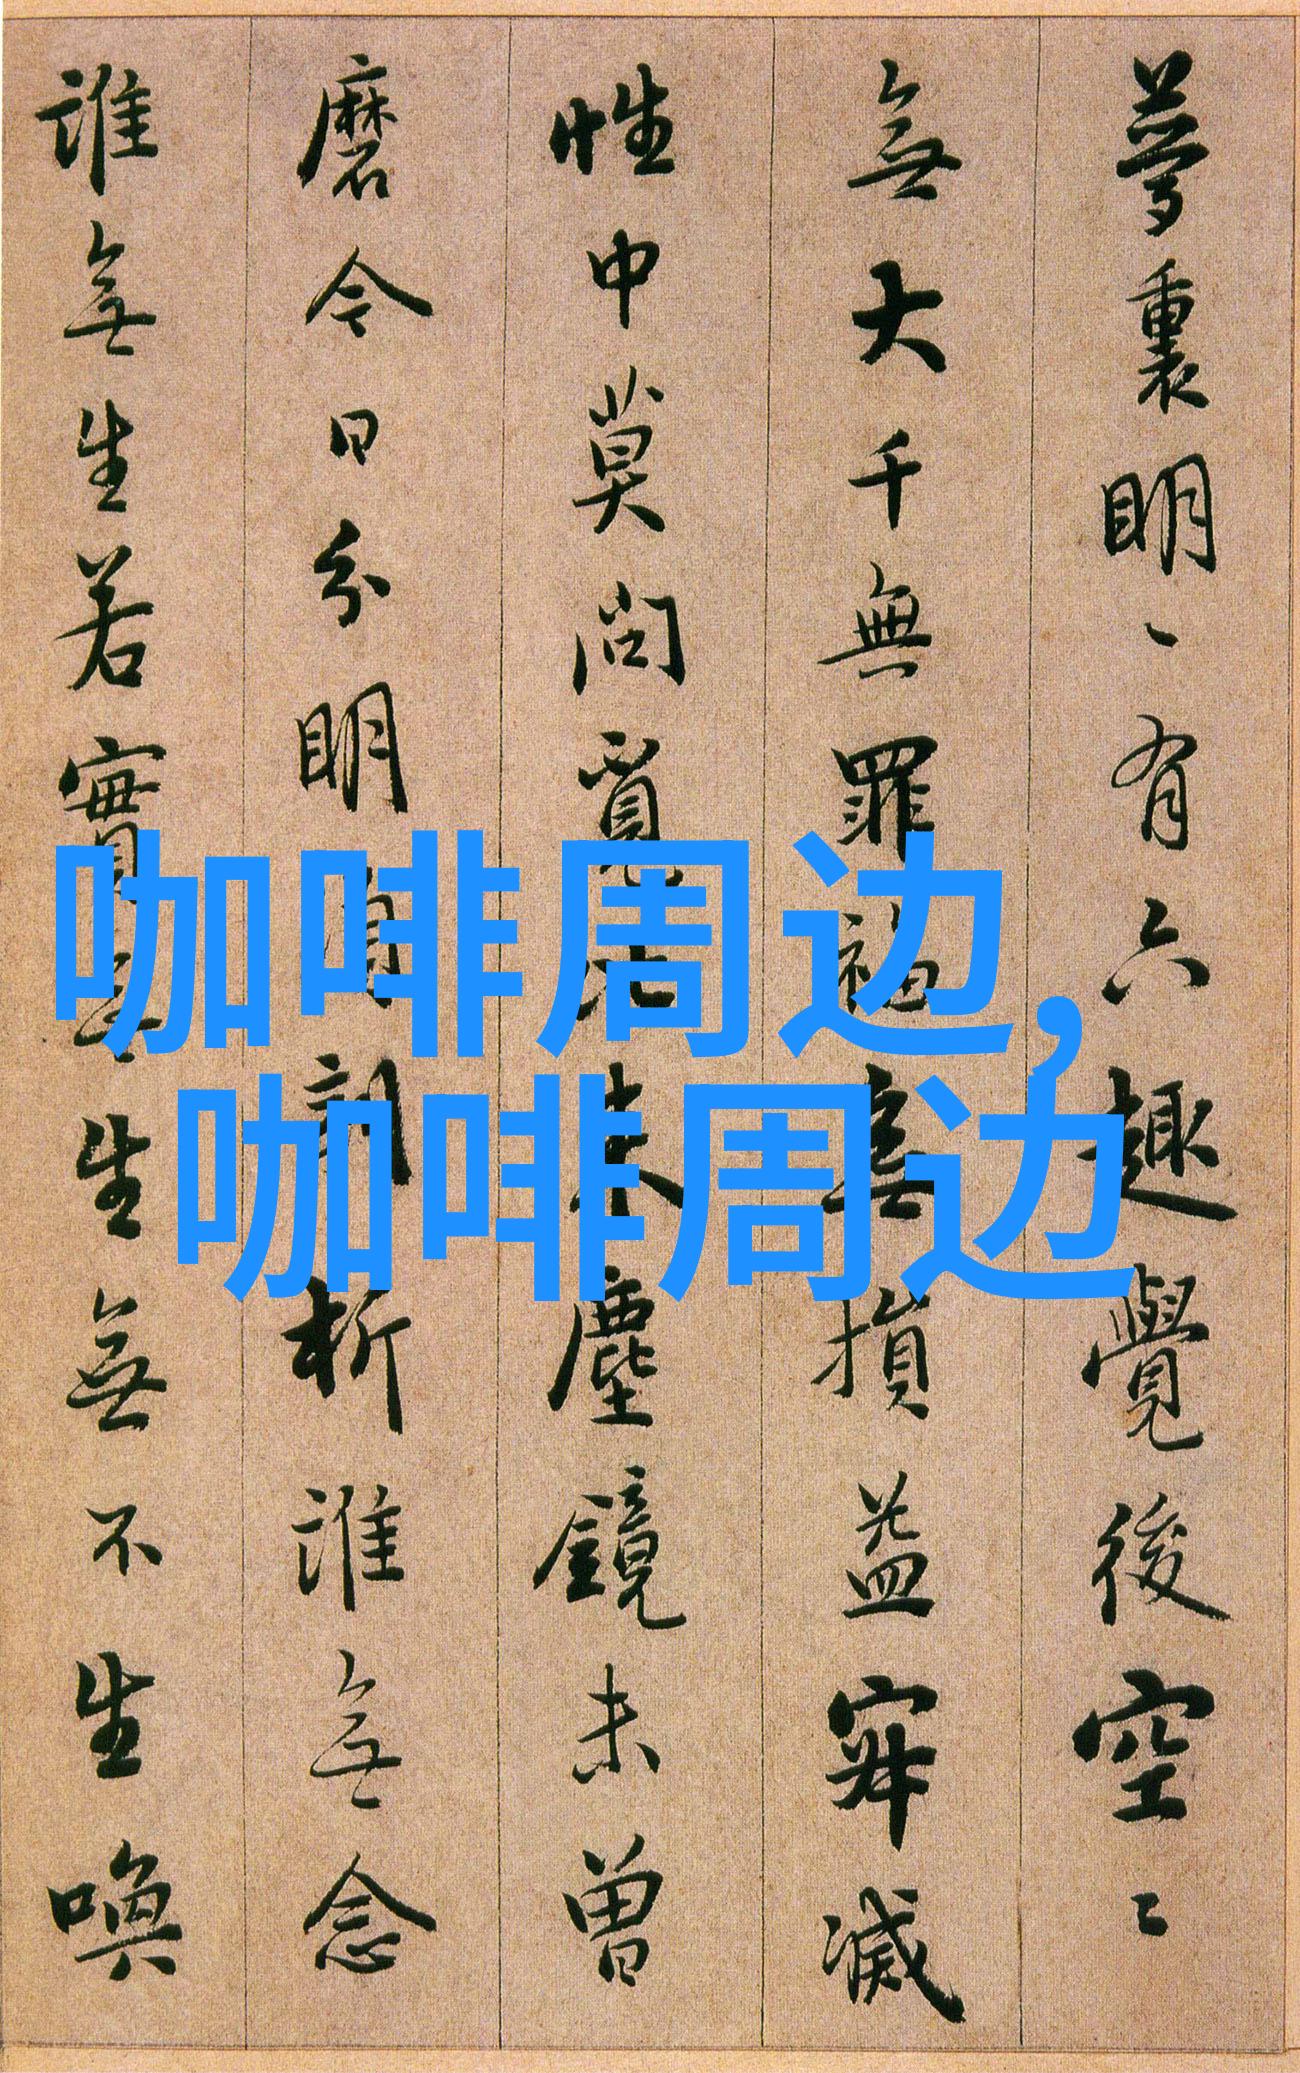 夢裏明〻有六趣覺後空〻
無大千無罪福無損益寂滅
性中莫問覓比来塵鏡未曾
磨今日分明須剖析誰無念
誰無生若實無生無不生喚
咖啡周边,
咖啡周边